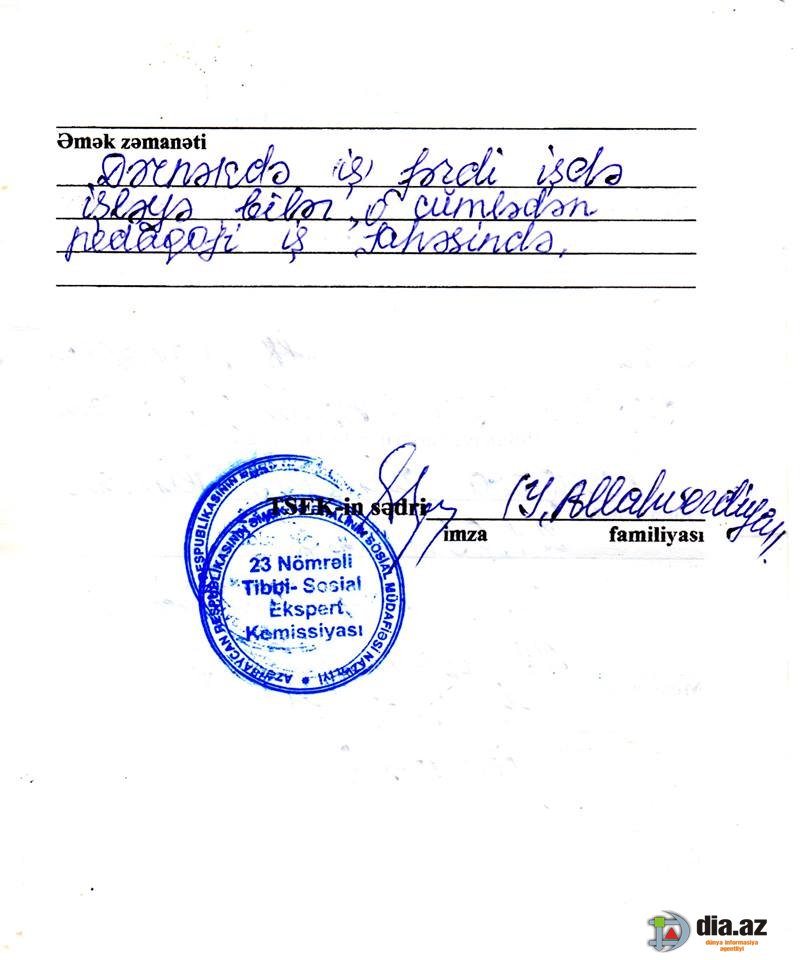 Əmək zəmanəti
Dərnəkdə iş, fərdi işdə
işləyə bilər, o cümlədən
pedaqoji iş sahəsində.
TSEK-in sədri İ.Y. Allahverdiyev
imza familiyası
23 Nömrəli
Tibbi- Sosial
Ekspert
Komissiyası
AZƏRBAYCAN RESPUBLİKASININ ƏMƏK ƏHALİNİN SOSİAL MÜDAFİƏSİ NAZİRLİYİ
RESPUBLİKASININ
dia.az
dünya informasiya
agentliyi